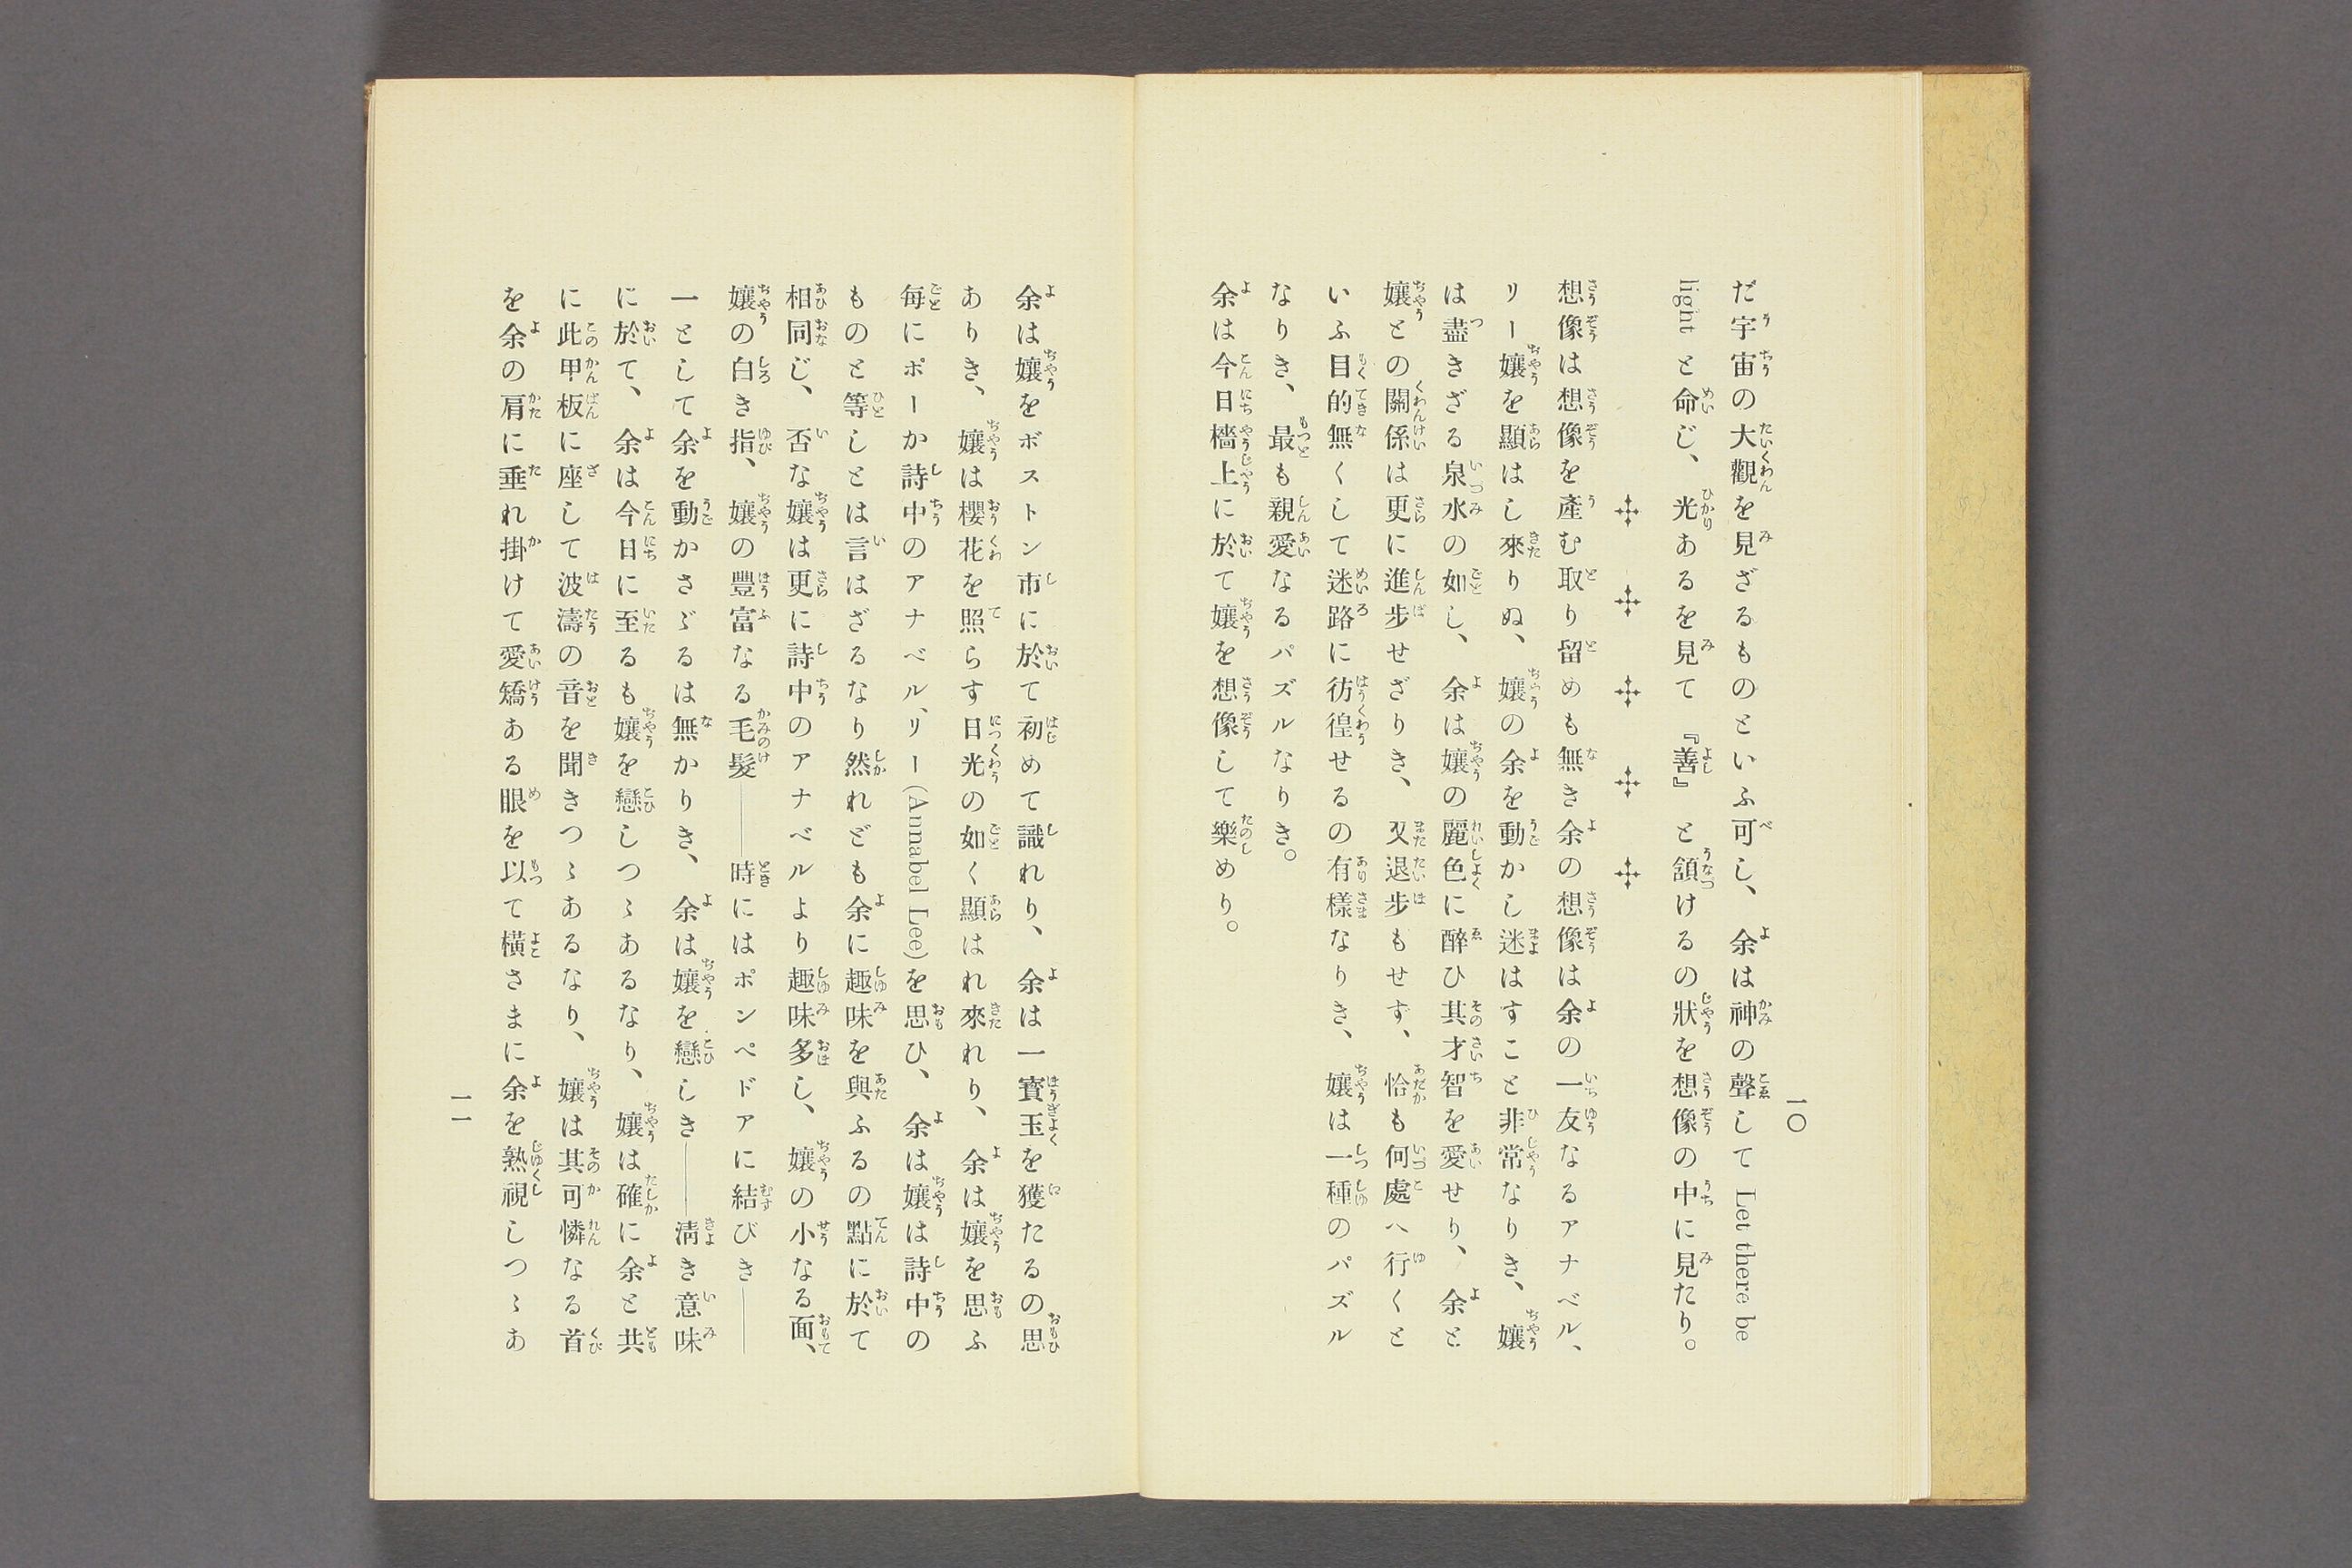 一〇
だ宇宙の大觀を見ざるものといふ可し、余は神の聲して Let there be
light と命じ、光あるを見て『善』と頷けるの狀を想像の中に見たり。
想像は想像を產む取り留めも無き余の想像は余の一友なるアナベル、
リー孃を顯はし來りぬ、孃の余を動かし迷はすこと非常なりき、孃
は盡きざる泉水の如し、余は孃の麗色に醉ひ其才智を愛せり、余と
孃との關係は更に進步せざりき、又退步もせず、恰も何處へ行くと
いふ目的無くして迷路に彷徨せるの有樣なりき、孃は一種のパズル
なりき、最も親愛なるパズルなりき。
余は今日檣上に於て孃を想像して樂めり。
余は孃をボストン市に於て初めて識れり、余は一寳玉を獲たるの思
ありき、孃は櫻花を照らす日光の如く顯はれ來れり、余は孃を思ふ
每にポーか詩中のアナベル、リー(Annabel Lee)を思ひ、余は孃は詩中の
ものと等しとは言はざるなり然れども余に趣味を與ふるの點に於て
相同じ、否な孃は更に詩中のアナベルより趣味多し、孃の小なる面、
孃の白き指、孃の豐富なる毛髮――時にはポンペドアに結びき――
一として余を動かさゞるは無かりき、余は孃を戀しき――淸き意味
に於て、余は今日に至るも孃を戀しつゝあるなり、孃は確に余と共
に此甲板に座して波濤の音を聞きつゝあるなり、孃は其可憐なる首
を余の肩に垂れ掛けて愛矯ある眼を以て橫さまに余を熟視しつゝあ
一一